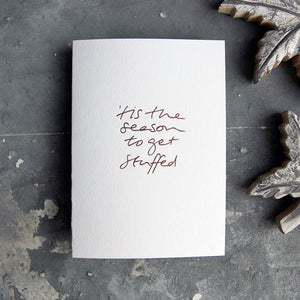 'tis the
season
to get
stuffed